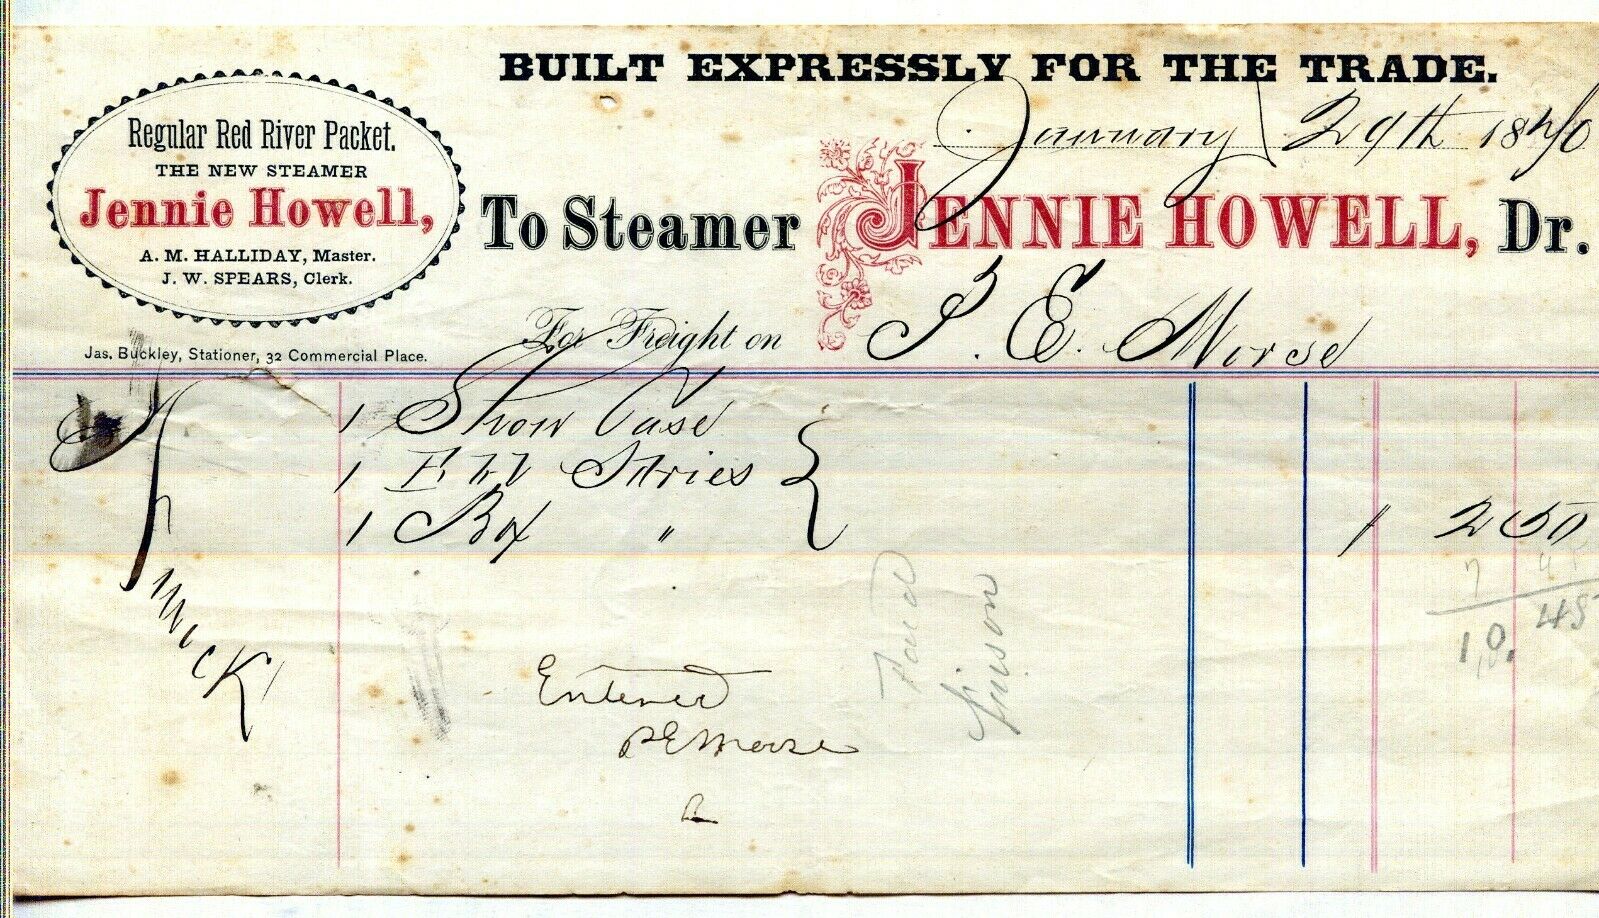 BUILT EXPRESSLY FOR THE TRADE.
January 29th 1870
Regular Red River Packet.
THE NEW STEAMER
Jennie Howell,
A. M. HALLIDAY, Master.
J. W. SPEARS, Clerk.
Jas. Buckley, Stationer, 32 Commercial Place.
To Steamer JENNIE HOWELL, Dr.
For Freight on P. E. Morse
1 Show Case
1 Stories
1 Box "
2 50
7 45
10. 45
Entered
P E Morse